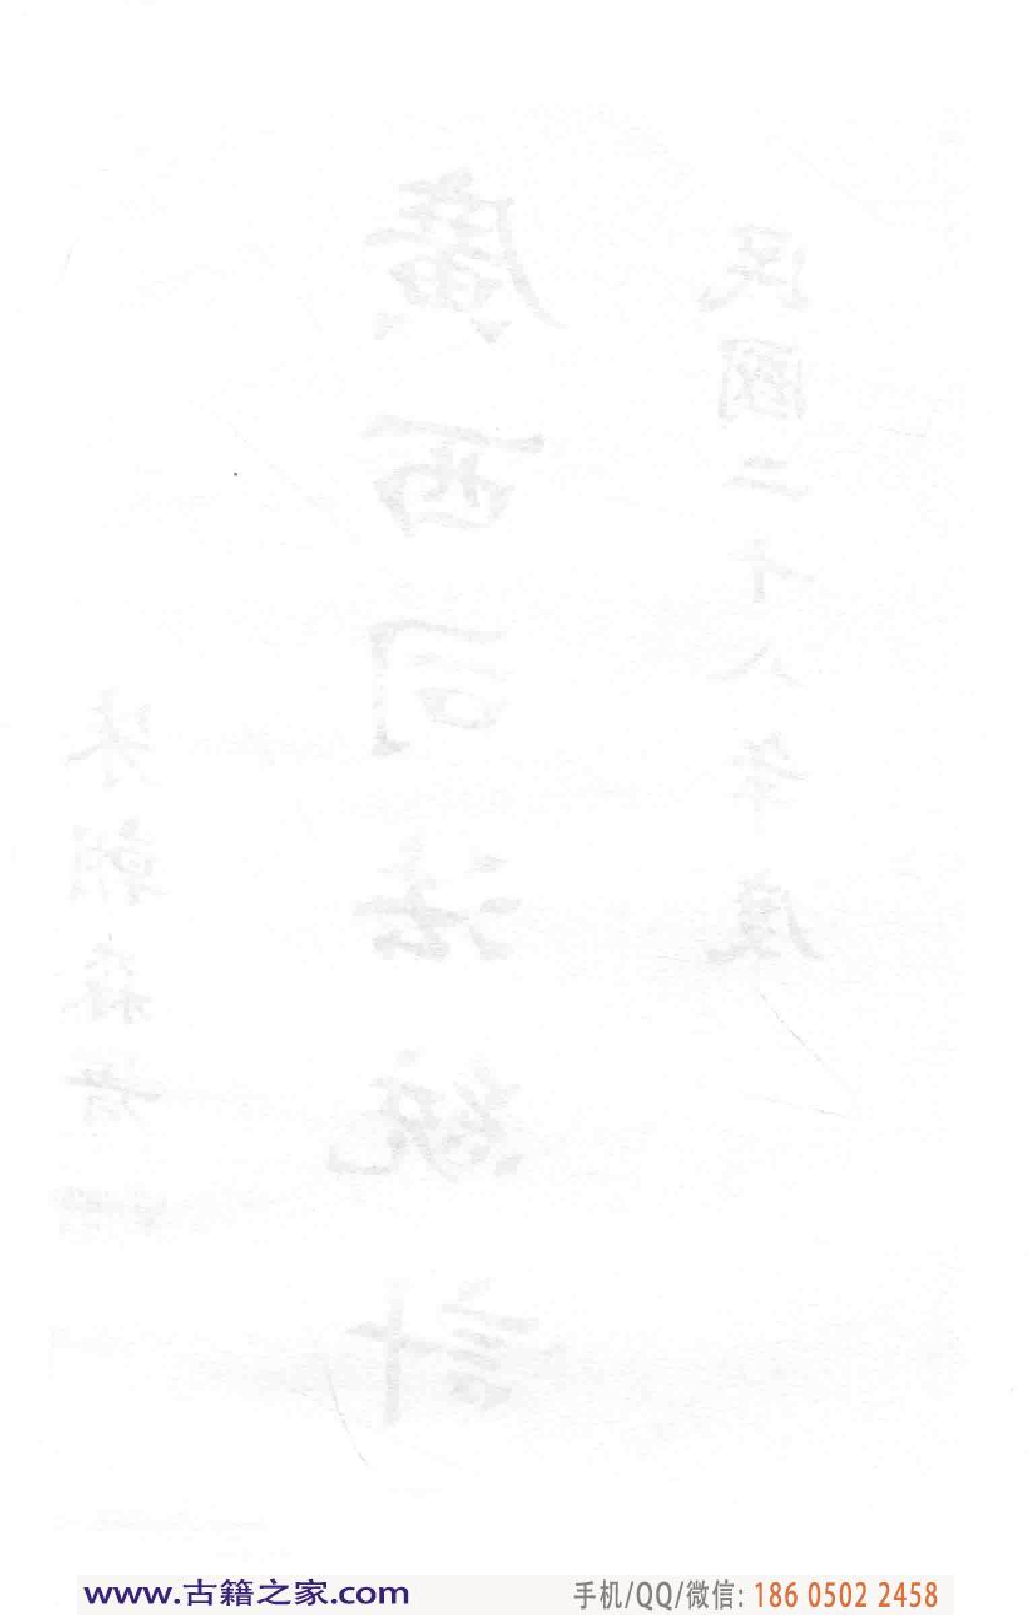 民國二十八年度
廣西司法統計
朱朝森署
www.古籍之家.com
手机/QQ/微信: 186 0502 2458